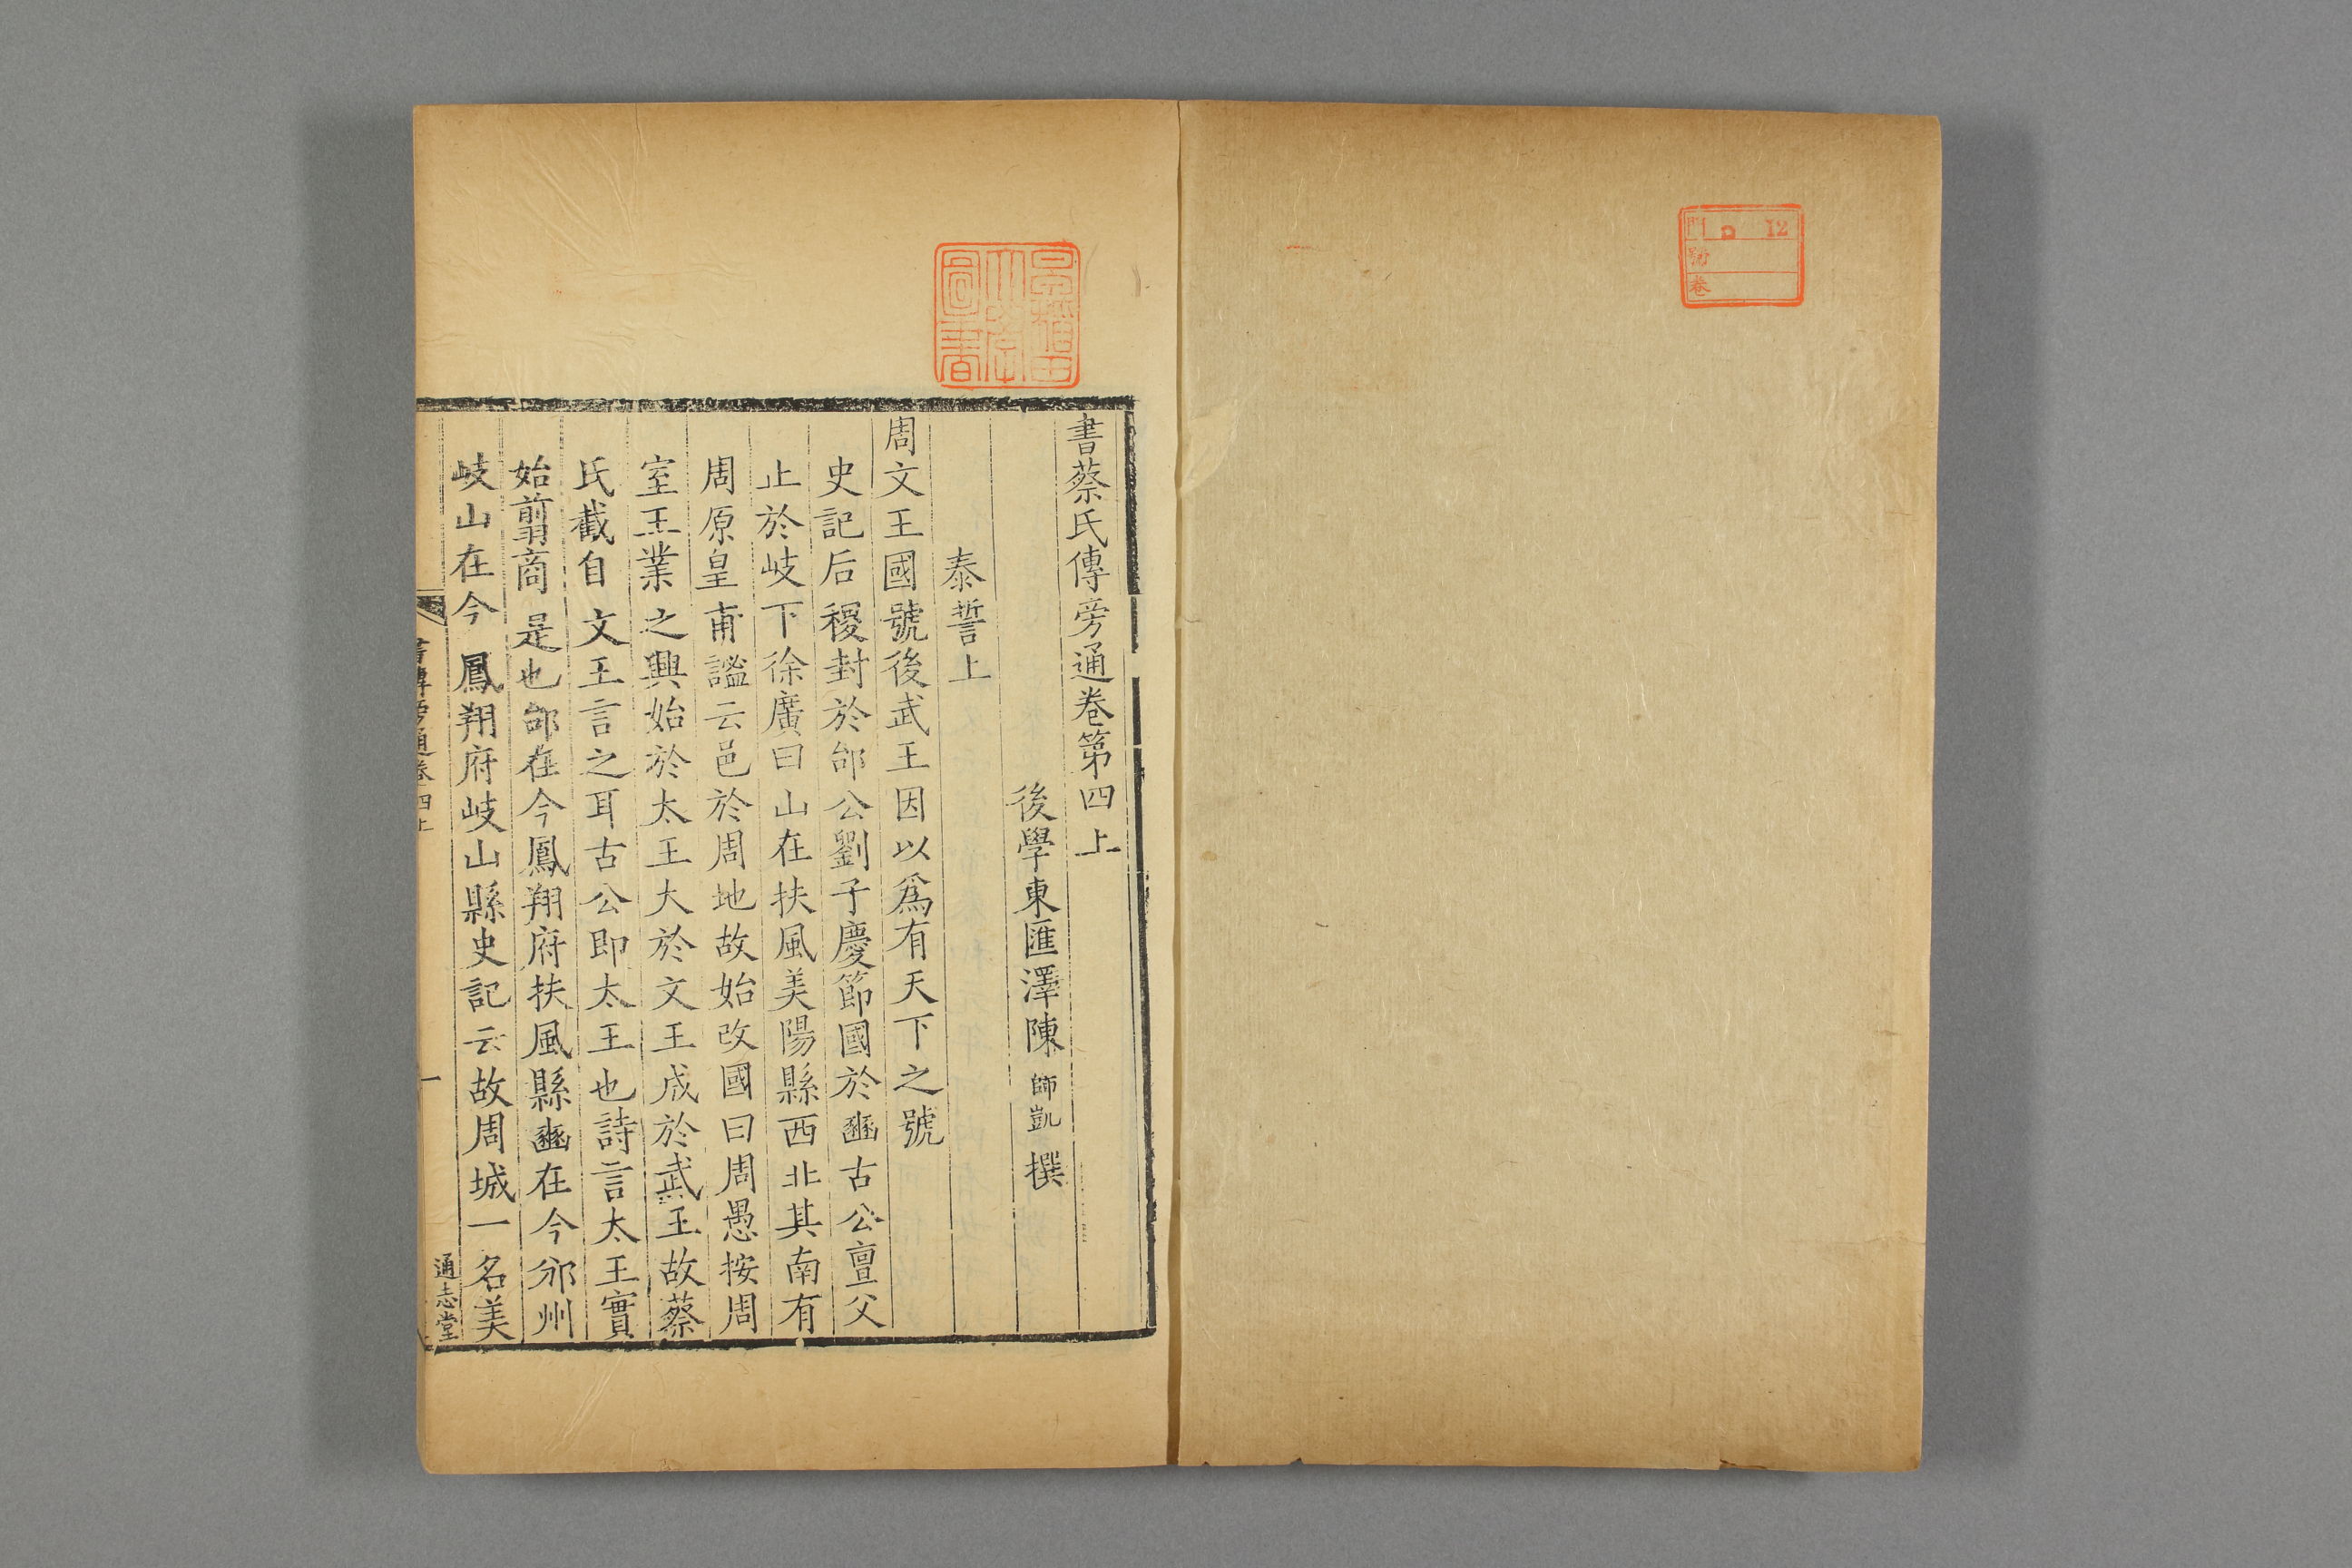 門 ロ 12
號
卷
書蔡氏傳旁通卷第四上
後學東匯澤陳師凱撰
泰誓上
周文王國號後武王因以爲有天下之號
史記后稷封於邰公劉子慶節國於豳古公亶父
止於岐下徐廣曰山在扶風美陽縣西北其南有
周原皇甫謐云邑於周地故始改國曰周愚按周
室王業之興始於太王大於文王成於武王故蔡
氏截自文王言之耳古公即太王也詩言太王實
始翦商是也邰在今鳳翔府扶風縣豳在今邠州
岐山在今鳳翔府岐山縣史記云故周城一名美
書傳旁通卷四上
一
通志堂
圖書